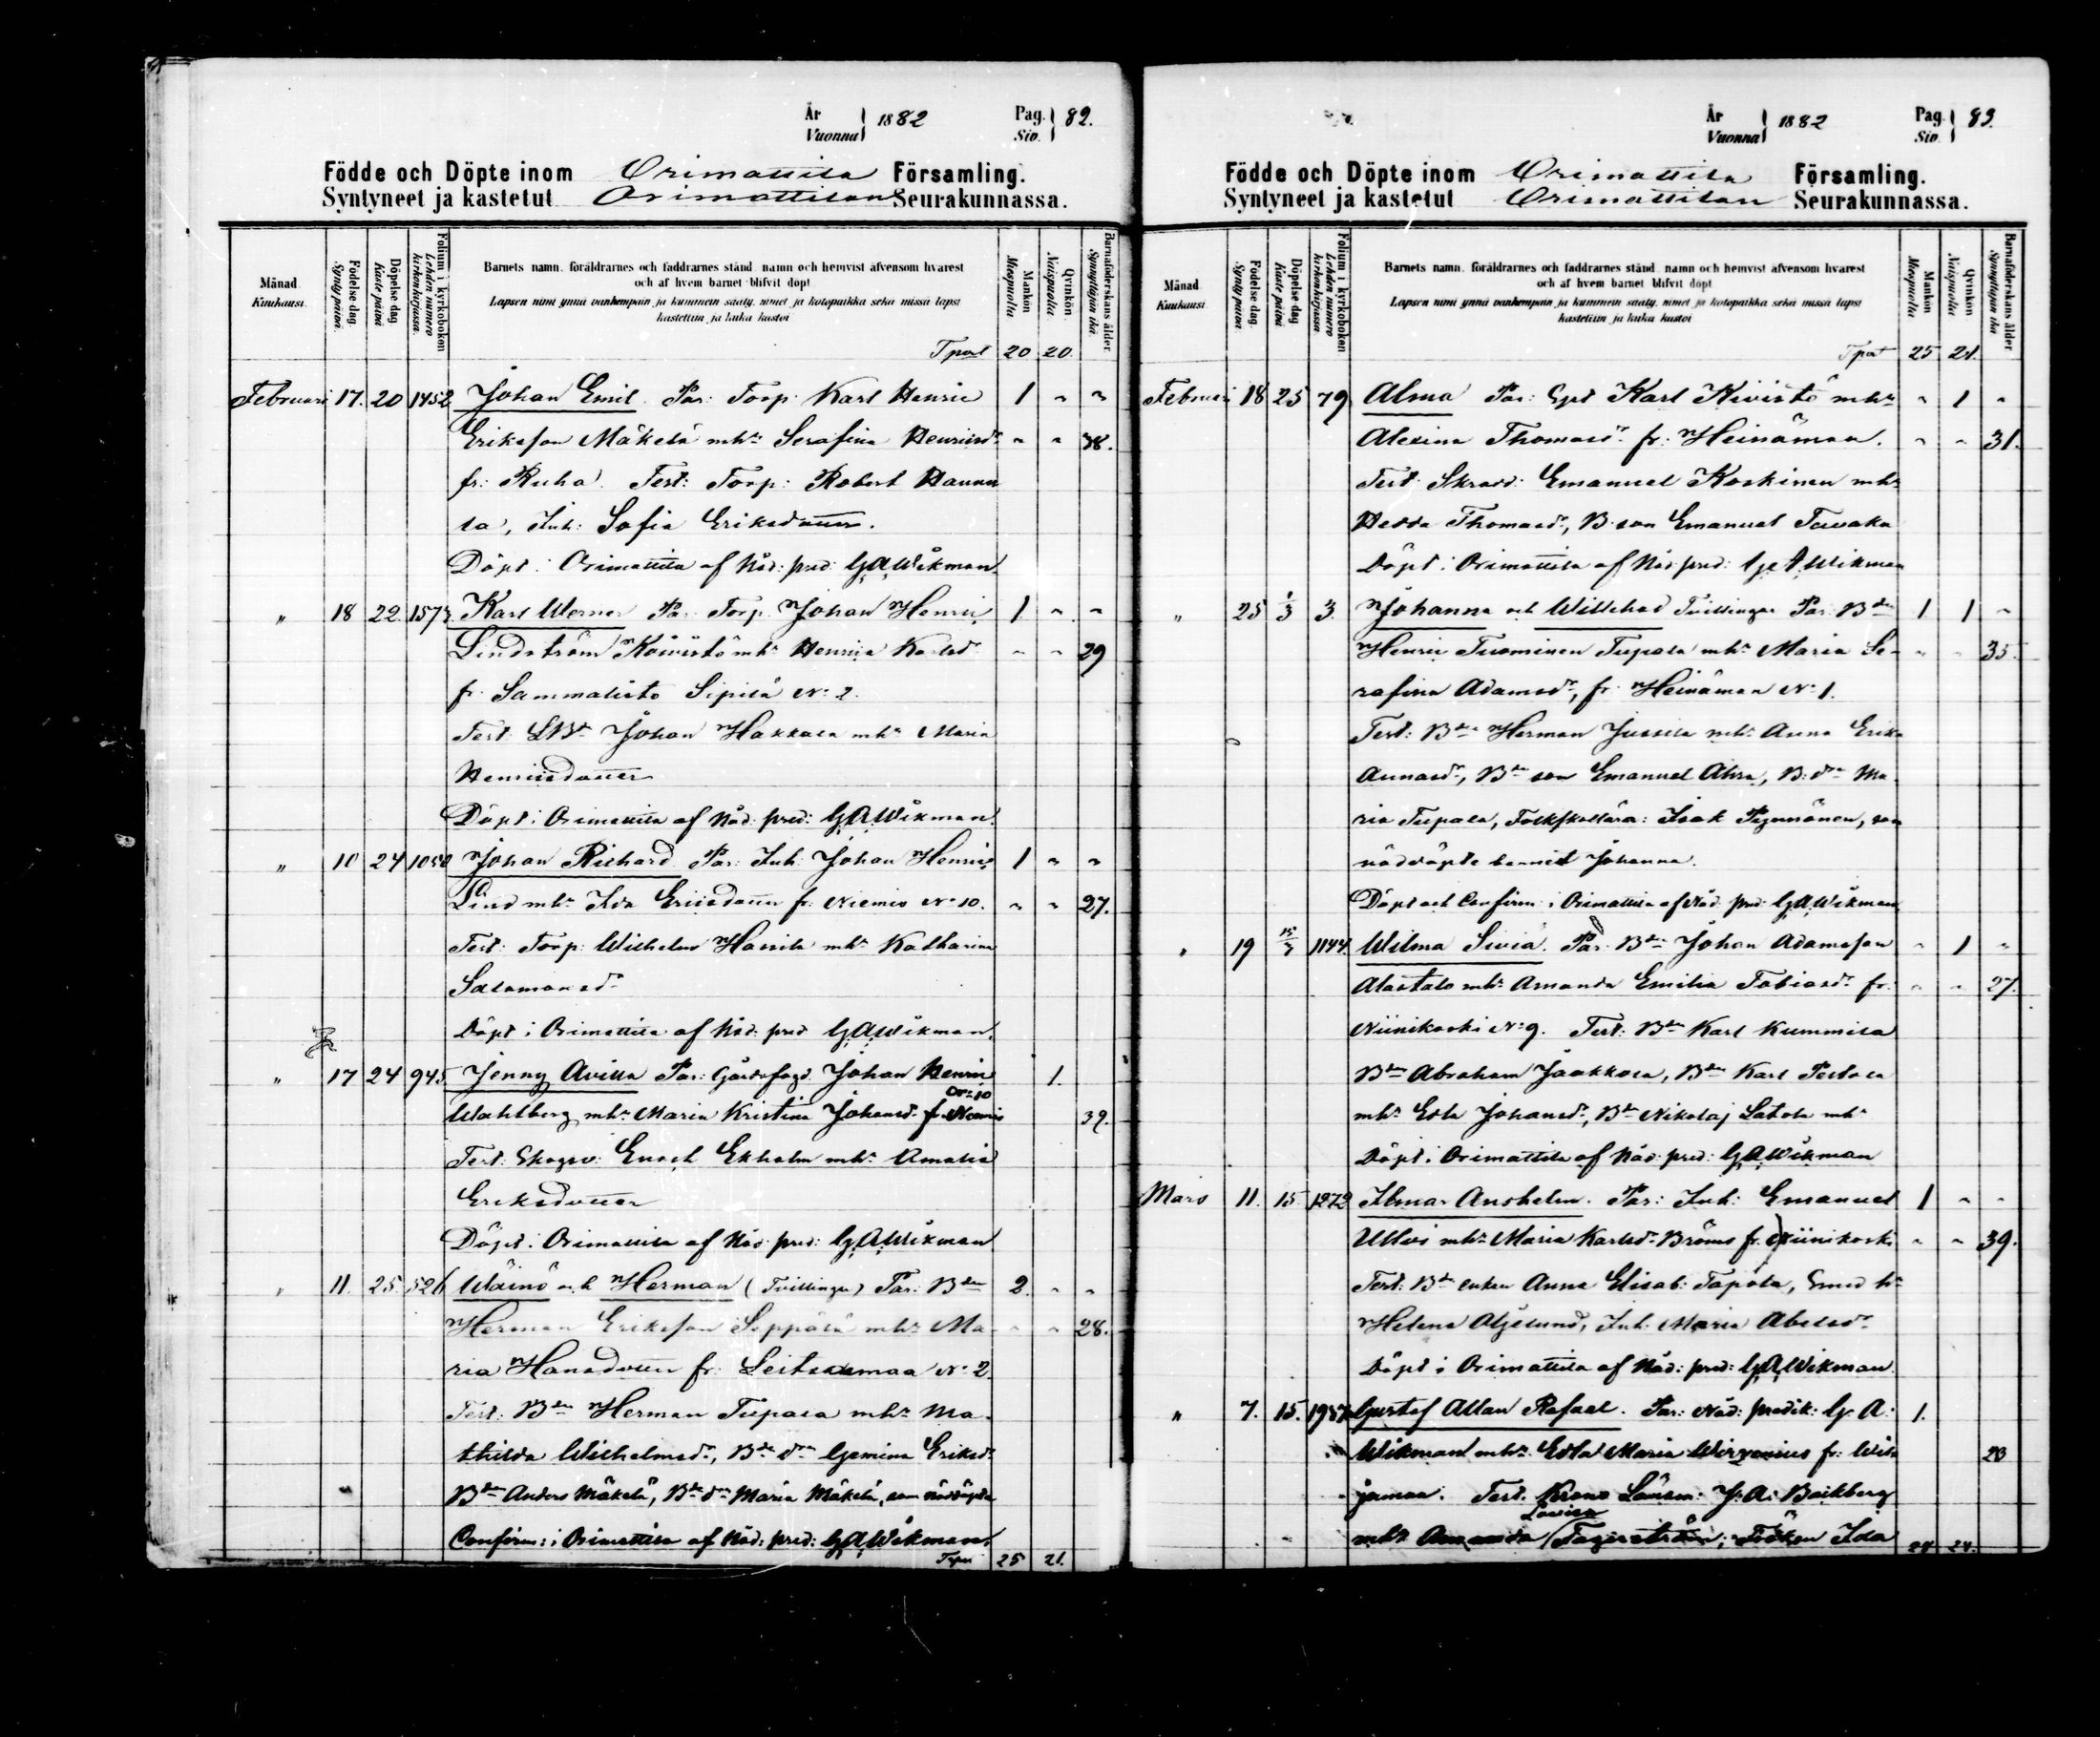 År Vuonna } 1882 Pag. Siv. } 82.
Födde och Döpte inom Orimattila Församling.
Syntyneet ja kastetut Orimattilan Seurakunnassa.
Månad. Kuukausi.
Födelse dag. Synty päivä.
Döpelse dag Kaste päivä
Folium i kyrkoboken Lehden numero kirkonkirjassa.
Barnets namn, föräldrarnes och faddrarnes stånd, namn och hemvist äfvensom hvarest
och af hvem barnet blifvit döpt
Lapsen nimi ynnä vanhempain ja kummein sääty, nimet ja kotopaikka sekä missä lapsi
kastettiin ja kuka kastoi
Mankön Miespuolia
Qvinkön. Naispuolia
Barnaföderskans ålder Synnyttäjän ikä.
Tport 20 20.
Februari 17. 20 1452 Johan Emil. För: Torp: Karl Henric 1 " "
Eriksson Mäkelä mhu Serafina Henriksdr " " 38.
fr: Ruha. Test: Torp: Robert Hannu
la, Inh: Sofia Eriksdotter.
Döpt i Orimattila af Nåd: pred: G,A,Wikman.
" 18 22. 157 Karl Werner För: Torp. Johan Henric 1 " "
Lindström Koivisto mhu Henrica Karlsdr " " 29
fr. Sammalisto Sipilä No 2.
Test: Johan Hakkala mhu Maria
Henricsdotter
Döpt i Orimattila af Nåd: pred: G,A,Wikman.
" 10 24 Johan Richard För: Inh: Johan Henric 1 " "
Lind mhu Ida Ericsdotter fr: Niemis No 10. " " 27.
Test: Torp: Wilhelm Hassila mhu Katharina
Salomonsdr
Döpt i Orimattila af Nåd: pred G,A,Wikman.
" 17 24 945 Jenny För: Gårdsfogd Johan Henric 1.
Wahlberg mhu Maria Kristina Johansdr fr Niemis No 10 39.
Test: Skogsv: Enoch Ekholm mhu Amalia
Eriksdotter
Döpt i Orimattila af Nåd: pred: G,A,Wikman
" 11. 25. 526 Wäinö och Herman (Tvillingar) För: Bdn 2. " "
Herman Eriksson Seppälä mhu Ma- " " 28.
ria Hansdotter fr: No 2.
Test: Bdn Herman Tupala mhu Ma-
thilda Wilhelmsdr, Bde dr Gemina Eriksdr
Bdn Anders Mäkelä, Bde dr Maria Mäkelä, som nöddöpte
Confirm: i Orimattila af Nåd: pred: G,A,Wikman.
Tport 25 21.
År Vuonna } 1882 Pag. Siv. } 83.
Födde och Döpte inom Orimattila Församling.
Syntyneet ja kastetut Orimattilan Seurakunnassa.
Månad Kuukausi
Födelse dag. Synty päivä.
Döpelse dag Kaste päivä
Folium i kyrkoboken Lehden numero kirkonkirjassa
Barnets namn, föräldrarnes och faddrarnes stånd, namn och hemvist äfvensom hvarest
och af hvem barnet blifvit döpt
Lapsen nimi ynnä vanhempain ja kummein sääty, nimet ja kotopaikka sekä missä lapsi
kastettiin ja kuka kastoi
Mankön Miespuolia
Qvinkön Naispuolia
Barnaföderskans ålder Synnyttäjän ikä
Tport 25 21.
Februari 18 25 79 Alma För: Karl Kivistö mhu " 1 "
Alexina Thomasdr fr: Heinämaa. " " 31.
Test: Skradd: Emanuel Koskinen mhu
Hedda Thomasdr, B. son Emanuel
Döpt i Orimattila af Nåd: pred: G,A,Wikman
" 25 1/3 3. Johanna och Willehad Tvillingar För: Bdn 1 1 "
Henric Tuominen Tupala mhu Maria Se- " " 35.
rafina Adamsdr, fr: Heinämaa No 1.
Test: Bdn Herman Jussila mhu Anna Erika
Bdn son Emanuel B: dr Ma-
ria Tupala, Folkskollära: Isak Pynnönen, som
nöddöpte barnet Johanna.
Döpt och Confirm: i Orimattila af Nåd: pred: G,A,Wikman
" 19 15/3 1144. Wilma Sivia. För: Bdn Johan Adamsson " 1 "
Alastalo mhu Amanda Emilia Tobiasdr fr: " " 27.
Niinikoski No 9. Test: Bdn Karl Kummila
Bdn Abraham Jaakkola, Bdn Karl Pertola
mhu Edla Johansdr, Bdn Nikolaj Latola mhu
Döpt i Orimattila af Nåd: pred: G,A,Wikman
Mars 11. 15 1272 Ilmar Anshelm. För: Inh: Emanuel 1 " "
mhu Maria Karlsdr Broms fr: Niinikoski " " 39.
Test: Bde enkan Anna Elisab: Tapola,
Helena Inh: Maria Abelsdr
Döpt i Orimattila af Nåd: pred: G,A,Wikman.
" 7. 15. Gustaf Allan Rafael. För: Nåd: predik: G. A. 1.
Wikman mhu Edla Maria Wirzenius fr: Wil- 20
jamaa. Test: Krono Länsm: J. A. Backberg
mhu Amanda Lovisa Fagerström, Fröken Ida